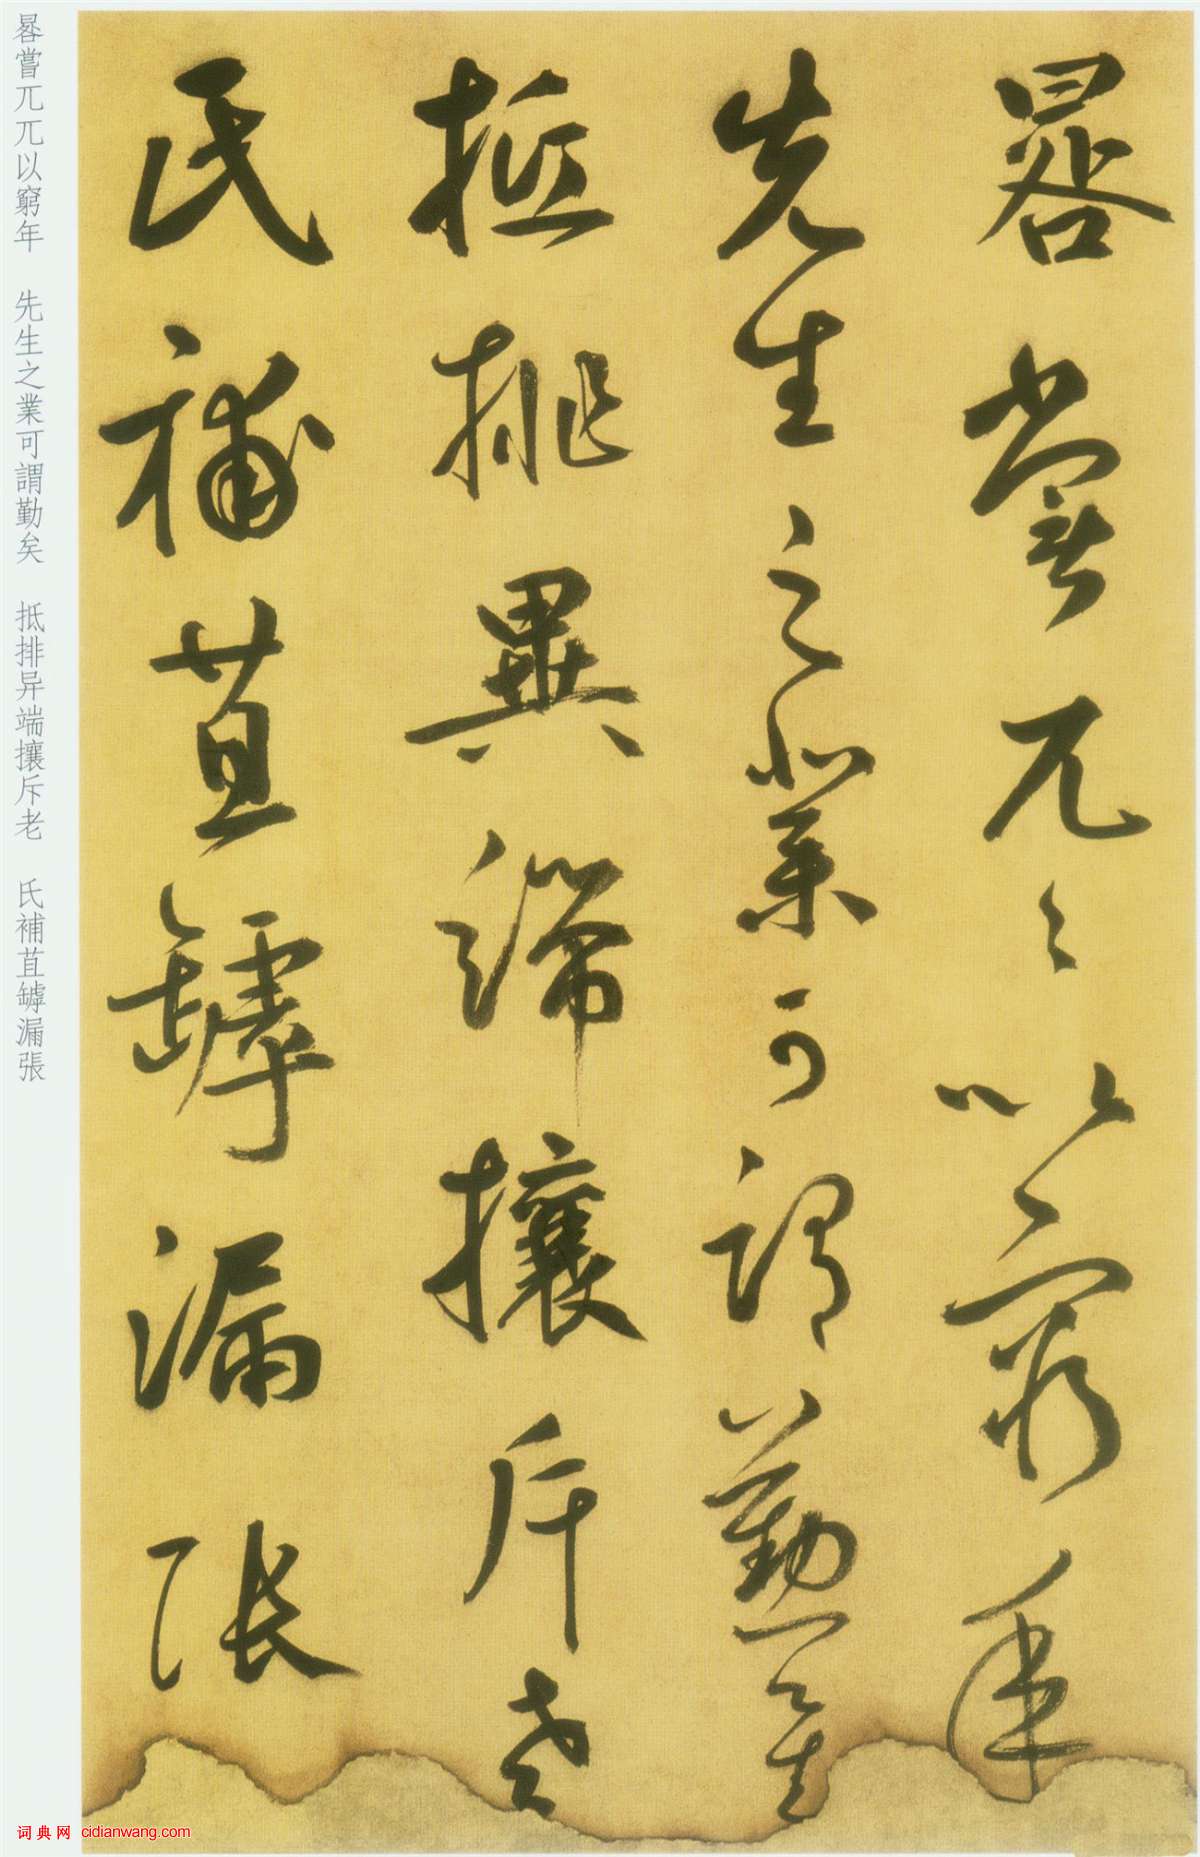 晷嘗兀〻以窮年
先生之業可謂勤矣
抵排異端攘斥老
氏補苴罅漏張
晷嘗兀兀以窮年　先生之業可謂勤矣　抵排异端攘斥老　氏補苴罅漏張
词典网 cidianwang.com